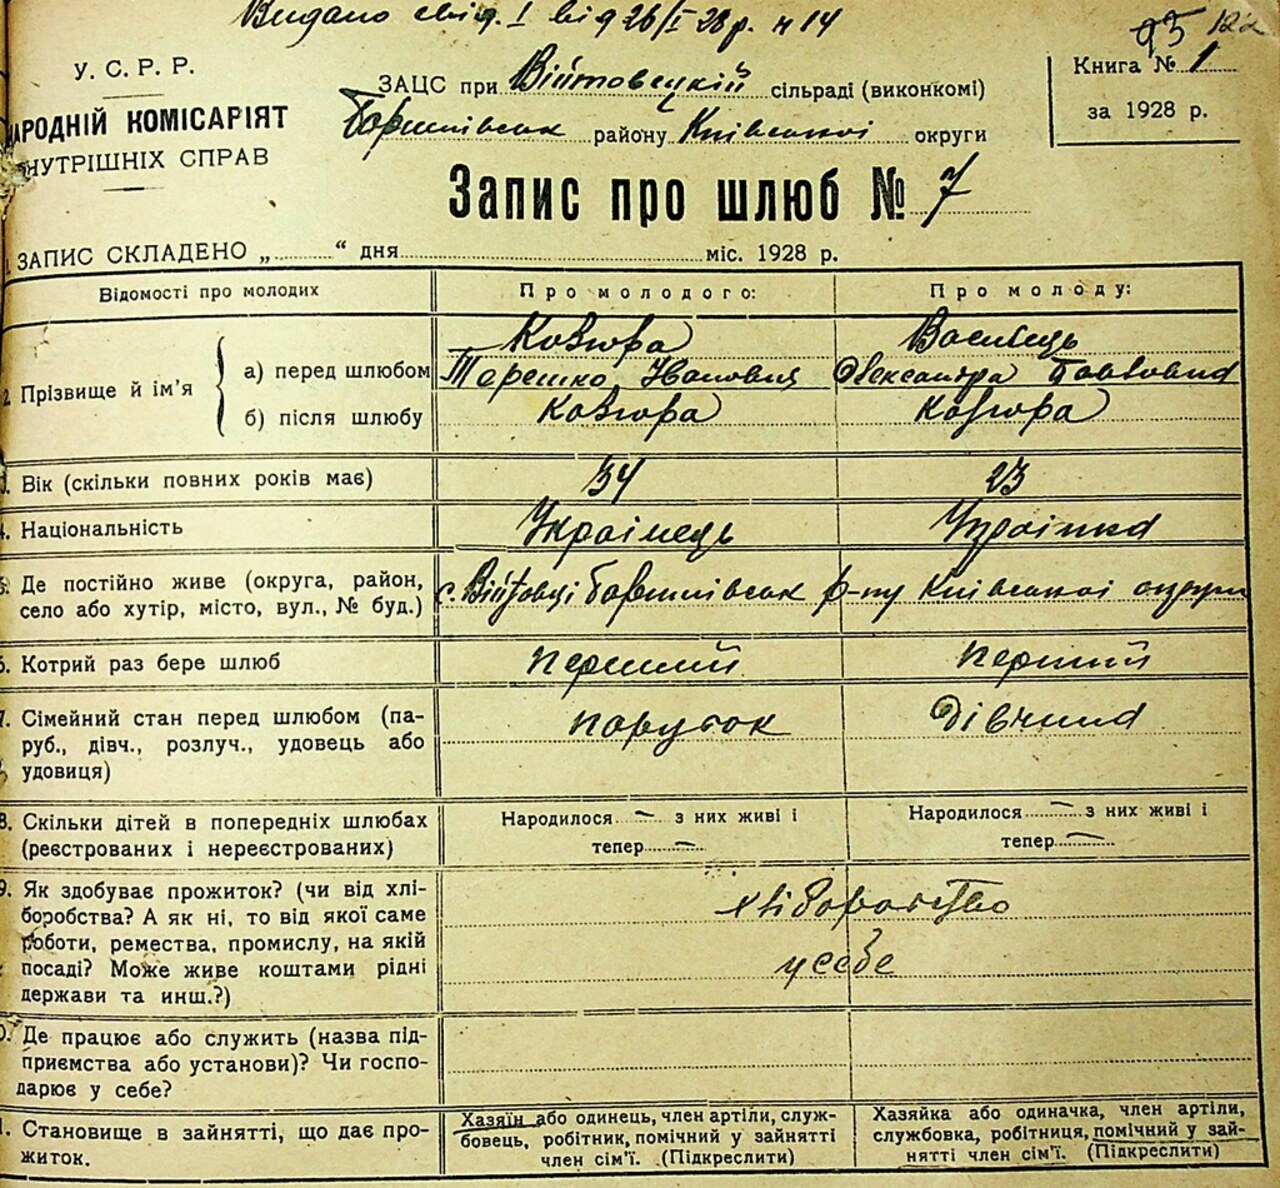 Видано свід. І від 26/І 28 р. н 14
95 122
У. С. Р. Р.
НАРОДНІЙ КОМІСАРІЯТ
ВНУТРІШНІХ СПРАВ
ЗАЦС при Війтовецкій сільраді (виконкомі)
Баришівськ району Київської округи
Книга № 1
за 1928 р.
Запис про шлюб № 7
1. ЗАПИС СКЛАДЕНО „ “ дня міс. 1928 р.
Відомості про молодих
Про молодого:
Про молоду:
2. Прізвище й ім’я
а) перед шлюбом
Козюра
Терешко Іванович
Василець
Олександра Павловна
б) після шлюбу
Козюра
Козюра
3. Вік (скільки повних років має)
34
23
4. Національність
Украінець
Украінка
5. Де постійно живе (округа, район,
село або хутір, місто, вул., № буд.)
с. Війтовці Баришівськ р-ну Київської округи
6. Котрий раз бере шлюб
перший
перший
7. Сімейний стан перед шлюбом (па-
руб., дівч., розлуч., удовець або
удовиця)
парубок
дівчина
8. Скільки дітей в попередніх шлюбах
(реєстрованих і нереєстрованих)
Народилося — з них живі і
тепер —
Народилося — з них живі і
тепер —
9. Як здобуває прожиток? (чи від хлі-
боробства? А як ні, то від якої саме
роботи, ремества, промислу, на якій
посаді? Може живе коштами рідні
держави та инш.?)
хліборобство
у себе
10. Де працює або служить (назва під-
приємства або установи)? Чи госпо-
дарює у себе?
11. Становище в зайнятті, що дає про-
житок.
Хазяїн або одинець, член артіли, служ-
бовець, робітник, помічний у зайнятті
член сім’ї. (Підкреслити)
Хазяйка або одиначка, член артіли,
службовка, робітниця, помічний у зай-
нятті член сім’ї. (Підкреслити)